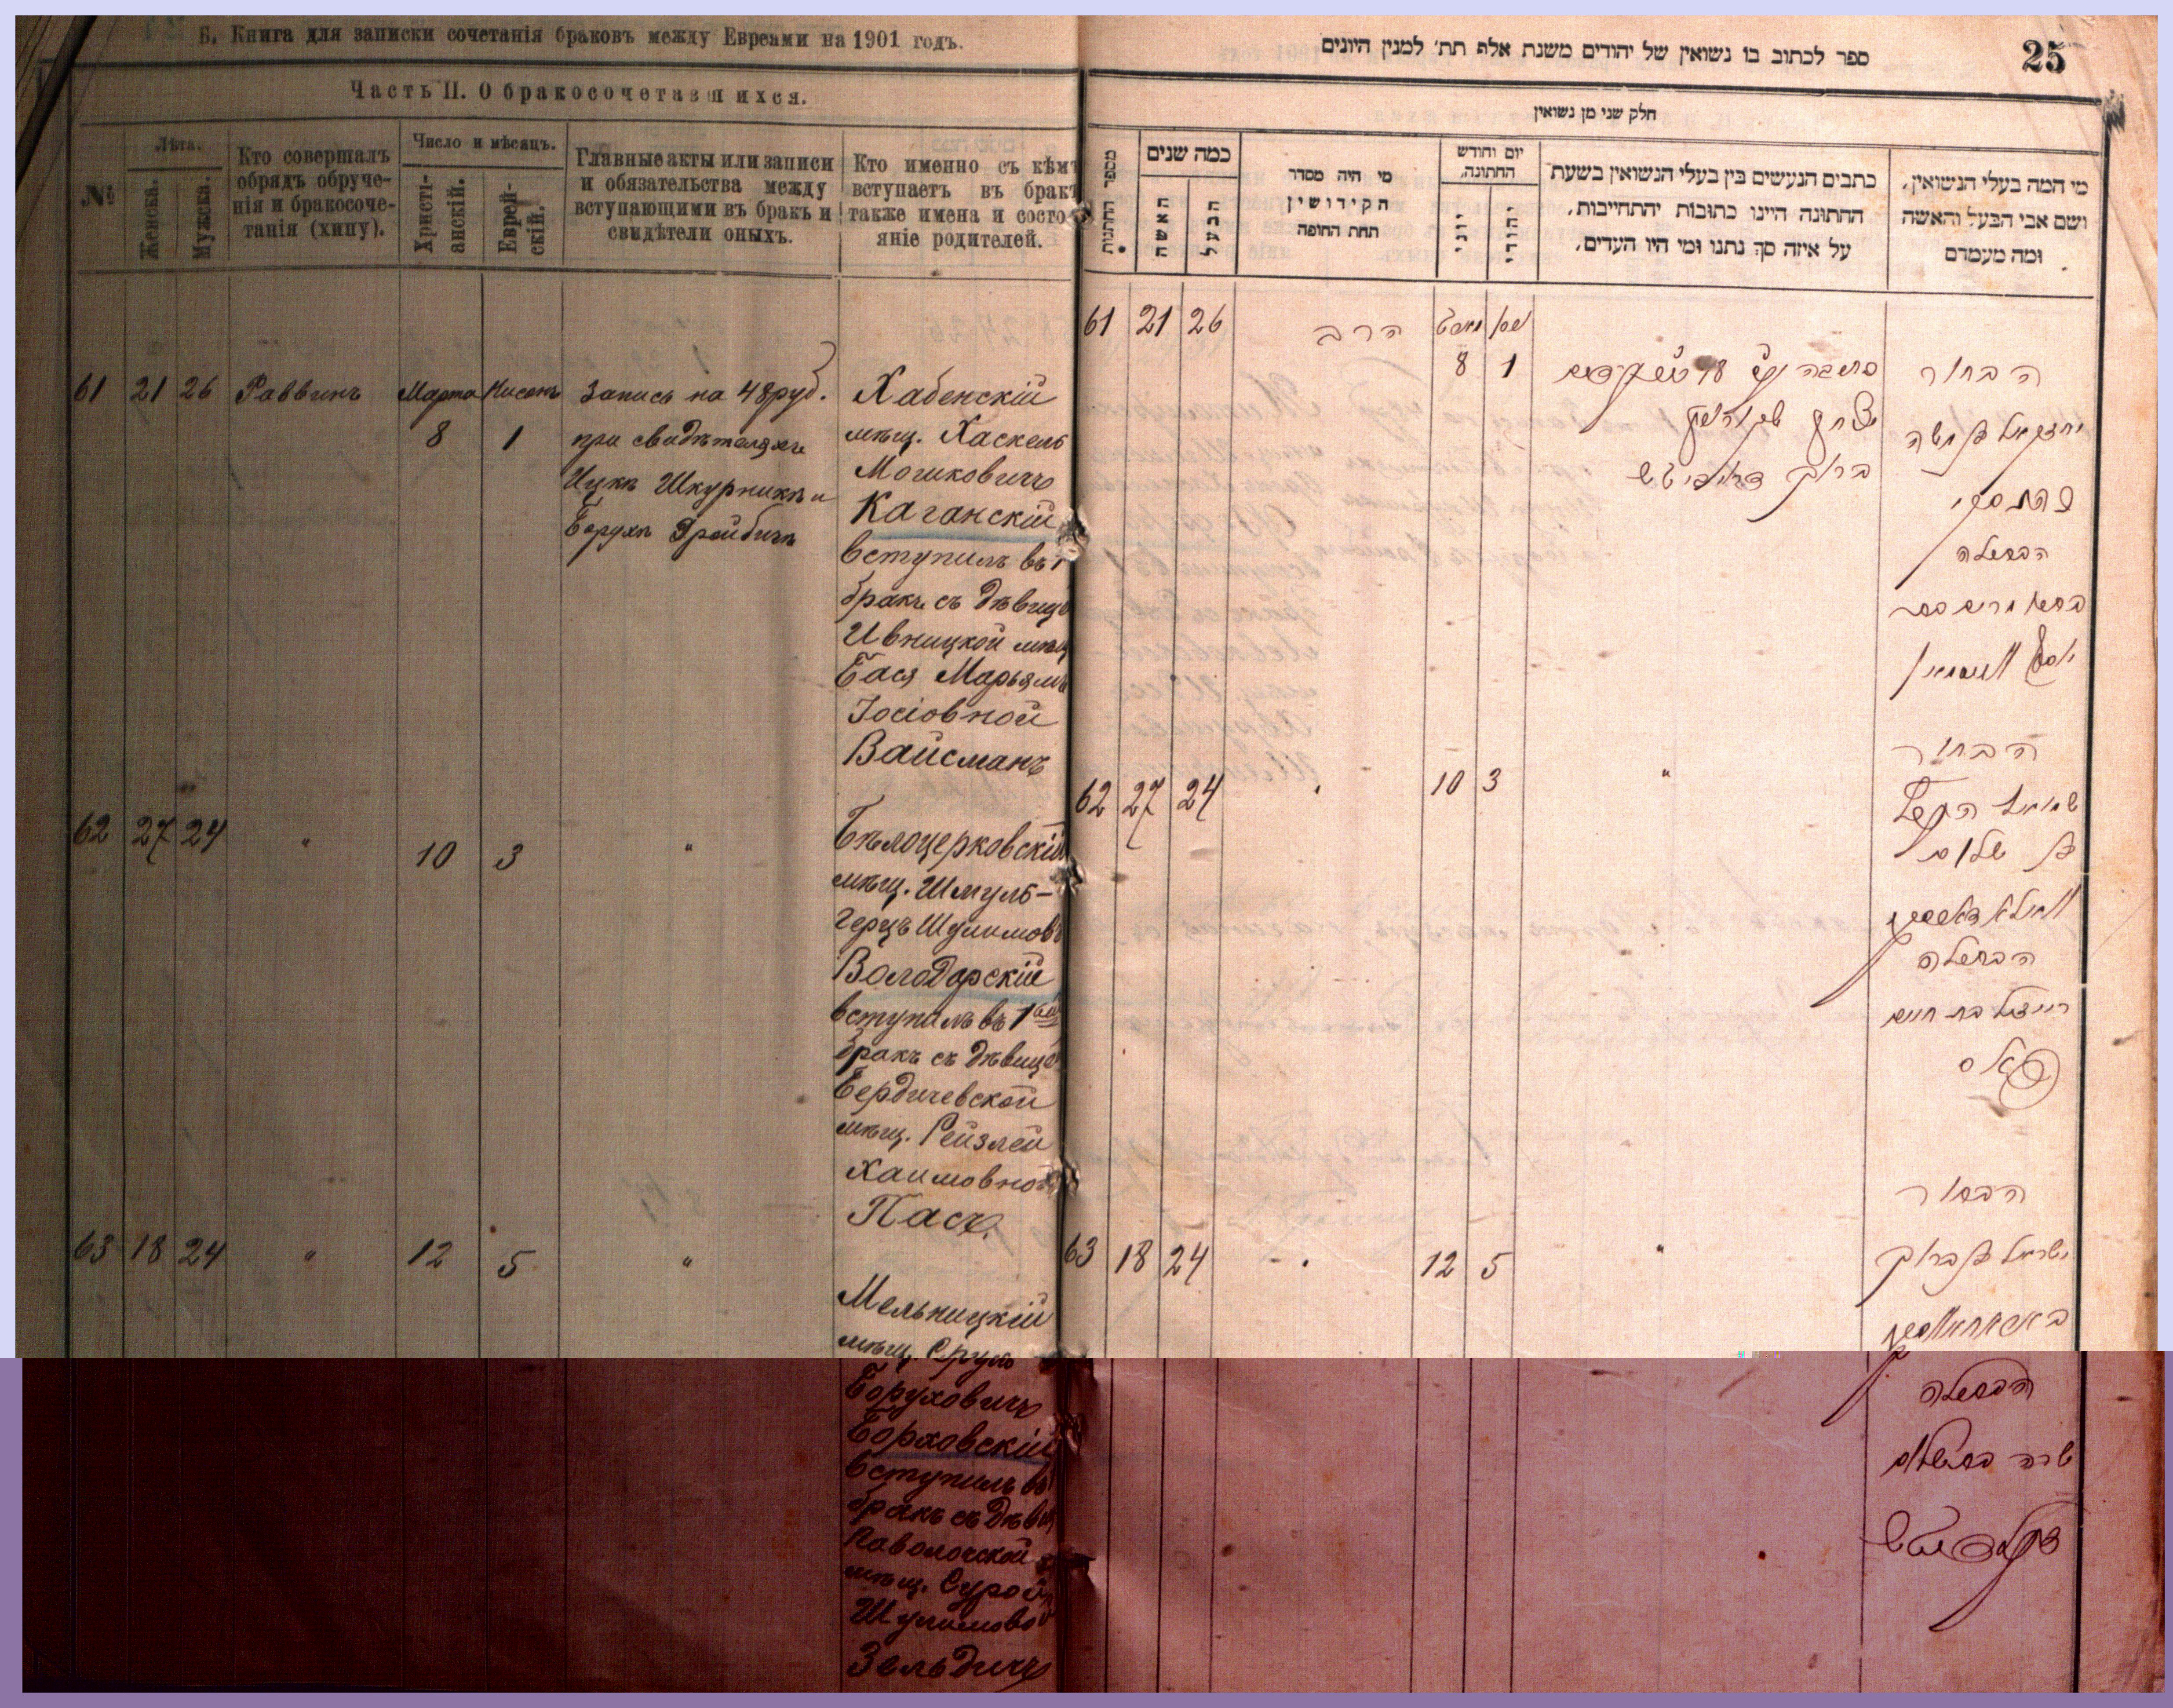 Б. Книга для записки сочетанія браковъ между Евреами на 1901 годъ.
Часть II. О бракосочетавшихся.
№
Лѣта.
Женска.
Мужска.
Кто совершалъ
обрядъ обруче-
нія и бракосоче-
танія (хипу).
Число и мѣсяцъ.
Христі-
анскій.
Еврей-
скій.
Главные акты или записи
и обязательства между
вступающими въ бракъ и
свидѣтели оныхъ.
Кто именно съ кѣмъ
вступаетъ въ бракъ
также имена и состо-
яніе родителей.
61 21 26 Раввинъ Марта 8 Нисонъ 1
Запись на 48 руб.
при свидѣтеляхъ
Ицкъ Шкурникъ и
Борухъ Дройбичъ
Хабенскій
мѣщ. Хаскель
Мошковичъ
Каганскій
вступилъ въ 1
бракъ съ дѣвицо
Ивницкой мѣщ
Бася Марьямъ
Іосіовной
Вайсманъ
62 27 24 " 10 3 "
Бѣлоцерковскій
мѣщ. Шмуль-
Герцъ Шулимовъ
Володарскій
вступилъ въ 1
бракъ съ дѣвицо
Бердичевской
мѣщ. Рейзлей
Хаимовной
Пасъ.
63 18 24 " 12 5 "
Мельницкій
мѣщ. Сруль
Боруховичъ
Борховскій
вступилъ въ
бракъ съ дѣви
Паволочской
мѣщ. Сурой
Шулимово
Зельдичъ
ספר לכתוב בו נשואין של יהודים משנת אלף תת׳ למנין היונים
25
חלק שני מן נשואין
מספר החתנות
כמה שנים
האשה
הבעל
מי היה מסדר
הקידושין
תחת החופה
יום וחודש
החתונה.
יוני
יהודי
כתבים הנעשים בין בעלי הנשואין בשעת
החתונה היינו כתובות יהתחייבות,
על איזה סך נתנו ומי היו העדים,
מי המה בעלי הנשואין,
ושם אבי הבעל והאשה
ומה מעמדם
61 21 26 הרב 8 1
הבחור
יחזקאל בן משה
הבתולה
62 27 24 " 10 3 "
הבחור
שמואל הערץ
בן שלום
הבתולה
רייזל בת חיים
פאס
63 18 24 " 12 5 "
הבחור
ישראל בן ברוך
הבתולה
שרה בת שלום